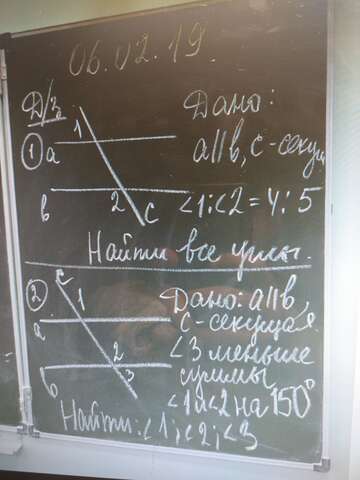 06.02.19.
Д/З
Дано:
1
① а
a||b, c - секущ
b 2 c
<1:<2 = 4:5
Найти все углы.
② c 1
Дано: a||b,
a
c - секущая.
2
<3 меньше
b 3
суммы
<1 и <2 на 150°
Найти: <1; <2; <3